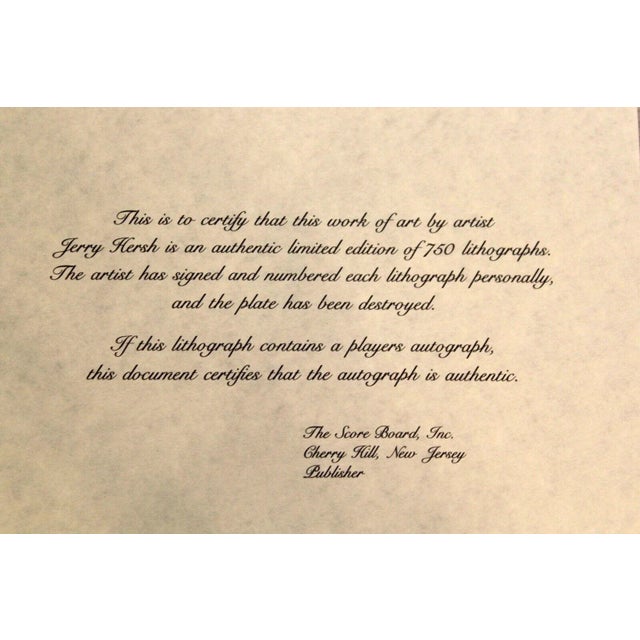 This is to certify that this work of art by artist
Jerry Hersh is an authentic limited edition of 750 lithographs.
The artist has signed and numbered each lithograph personally,
and the plate has been destroyed.
If this lithograph contains a players autograph,
this document certifies that the autograph is authentic.
The Score Board, Inc.
Cherry Hill, New Jersey
Publisher